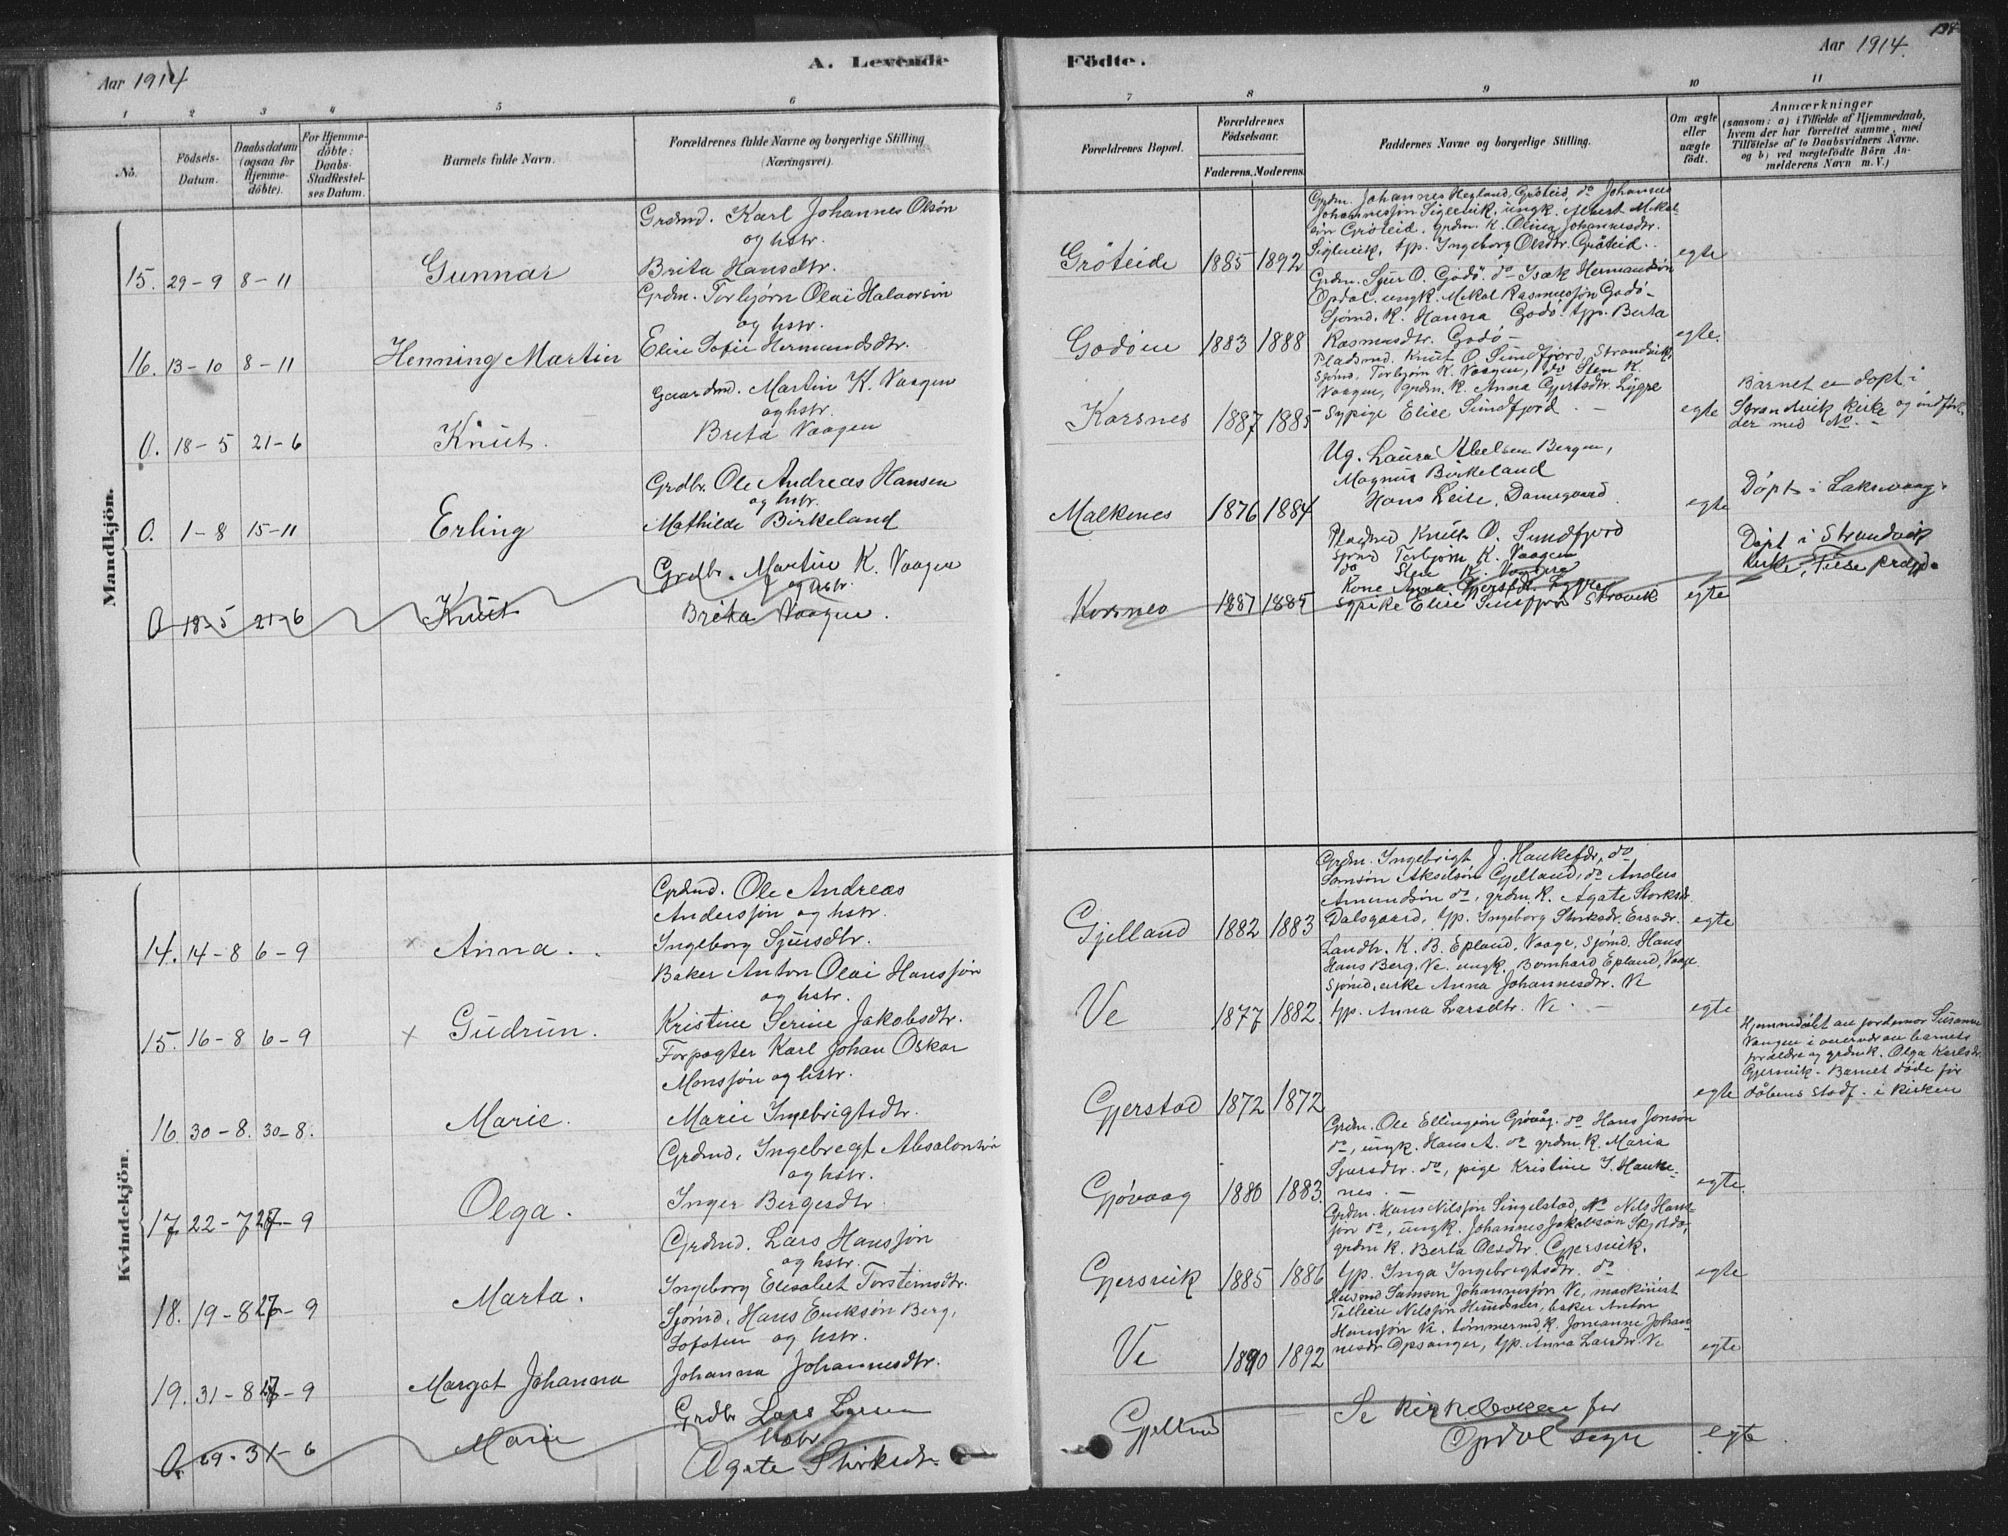 Aar 1914
A. Levende
Födte.
Aar 1914.
198
1 2 3 4 5 6 7 8 9 10 11
No.
Födsels-
Datum.
Daabsdatum
(ogsaa for
Hjemme-
döbte).
For Hjemme-
döbte:
Daabs-
Stadfæstel-
ses Datum.
Barnets fulde Navn.
Forældrenes fulde Navne og borgerlige Stilling
(Næringsvei).
Forældrenes Bopæl.
Forældrenes
Födselsaar.
Faderens. Moderens.
Faddernes Navne og borgerlige Stilling.
Om ægte
eller
uægte
födt.
Anmærkninger
(saasom: a) i Tilfælde af Hjemmedaab,
hvem der har forrettet samme, med
Tilföielse af to Daabsvidners Navne.
og b) ved uægtefödte Börn An-
melderens Navn m. V.)
Mandkjön.
Grdmd. Karl Johannes Olsøn
og hstr.
Brita Hansdtr.
15. 29-9 8-11 Gunnar
Grøteide 1885 1892
Grdm. Johannes Hegland, Grøteid, do Johannes
Johannessøn Siglevik, ungk. Albert Mikal-
søn Grøteid, grdm. K. Olina Johannesdtr.
Siglevik, tjp. Ingeborg Olsdtr. Grøteid.
egte
Grdm. Torbjørn Olai Halvorsøn
og hstr.
Elise Sofie Hermundsdtr.
16. 13-10 8-11 Henning Martin
Godøen 1883 1888
Grdm. Sjur O. Godø. do Isak Hermundsøn
Opdal. ungk. Mikal Rasmussøn Godø-
Sjømd. K. Hanna Godø. tjp. Berta
Rasmusdtr. Godø-
egte.
Gaardmd. Martin K. Vaagen
og hstr.
Brita Vaagen
0. 18-5 21-6 Knut.
Korsnes 1887 1885
Pladsmd. Knut O. Sundfjord, Strandvik,
Sjømd. Torbjørn K. Vaagen, do Sten K.
Vaagen, grdm. K. Anna Gjertsdtr. Lygre
Sypige Elise Sundfjord. -
egte
Barnet er døpt i
Strandvik kirke og indført
der med No. -
Grdbr. Ole Andreas Hansen
og hstr.
Mathilde Birkeland
0. 1-8 15-11 Erling
Malkenes 1876 1884
Ug. Laura Abelsen Bergen,
Magnus Birkeland
Hans Leise. Damsgaard
egte
Døpt i Laksevaag.
Grdbr. Martin K. Vaagen
og hstr.
Brita Vaagen.
0 18-5 21-6 Knut
Korsnes 1887 1885
Pladsmd Knut O. Sundfjord
Sjømd Torbjørn K. Vaagen
do Sten K. Vaagen
Kone Anna Gjertsdt. Lygre
Sypike Elise Sundfjord Stravik
egte
Døpt i Strandvik
Kirke, Fuse prgjd.
Kvindekjön.
Grdmd. Ole Andreas
Anderssøn og hstr.
Ingeborg Sjursdtr.
14. 14-8 6-9 × Anna.
Gjelland 1882 1883
Grdm. Ingebrigt J. Haukefær, do
Samson Akselsøn Gjelland, do Anders
Amundsøn do, grdm K. Agate Storksdr.
Dalsgaard, tjp. Ingeborg Storksdr.
egte
Baker Anton Olai Hanssøn
og hstr.
Kristine Serine Jakobsdtr.
15. 16-8 6-9 × Gudrun.
Ve 1877 1882.
Landh. K. B. Epland, Vaage, Sjømd. Hans
Hans Berg, Ve. ungk. Bernhard Epland, Vaage
Sjømd. enke Anna Johannesdtr. Ve
tjp. Anna Larsdtr. Ve. -
egte
Forpagter Karl Johan Oskar
Monssøn og hstr.
Marie Ingebrigtsdtr.
16 30-8. 30-8. Marie.
Gjerstad 1872 1872
egte
Hjemmedøbt av jordemor Susanne
Vaagen i overvær av barnets
forældre og grdmk. Olga Karlsdr.
Gjersvik. Barnet døde før
dåbens stadf. i kirken
Grdmd. Ingebregt Absalonsøn
og hstr.
Inger Bergesdtr.
17. 22-7 27-9 Olga.
Gjøvaag 1880 1883.
Grdm. Ole Ellingsøn Gjøvåg. do Hans Jonsøn
do, ungk. Hans A. do grdm K. Maria
Sjursdtr. do, pige Kristine I. Hauke-
nes. -
egte.
Grdmd. Lars Hanssøn
og hstr.
Ingeborg Elisabet Torsteinsdtr.
18. 19-8 27-9 Marta.
Gjersvik 1885 1886
Grdm. Hans Nilssøn Singelstad, do Nils Hans-
søn do, ungk. Johannes Jakobsøn Skjelde,
grdm K. Berta Olsdtr. Gjersvik.
tjp. Inga Ingebrigtsdtr. do
egte
Sjømd. Hans Eriksøn Berg,
Lofoten og hstr.
Johanna Johannesdtr.
19. 31-8 27-9 Margot Johanna
Ve 1890 1892
Samson Johannessøn Ve, maskinist
Tollein Nilssøn, baker Anton
Hanssøn Ve. tømmermd. K. Johanne Johan-
nesdr Opsanger, tjp. Anna Larsdtr. Ve
egte
Grdbr Lars Larsen
Hstr
Agate Storksdtr
0. 29.3 1-6 Marie
Gjelland
Se kirkeboken for
Opdal sogn
egte.